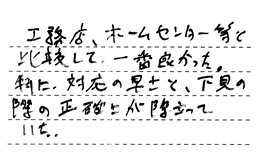 工務店、ホームセンター等と
比較して、一番良かった。
特に、対応の早さと、下見の
際の正確さが際立って
いた。